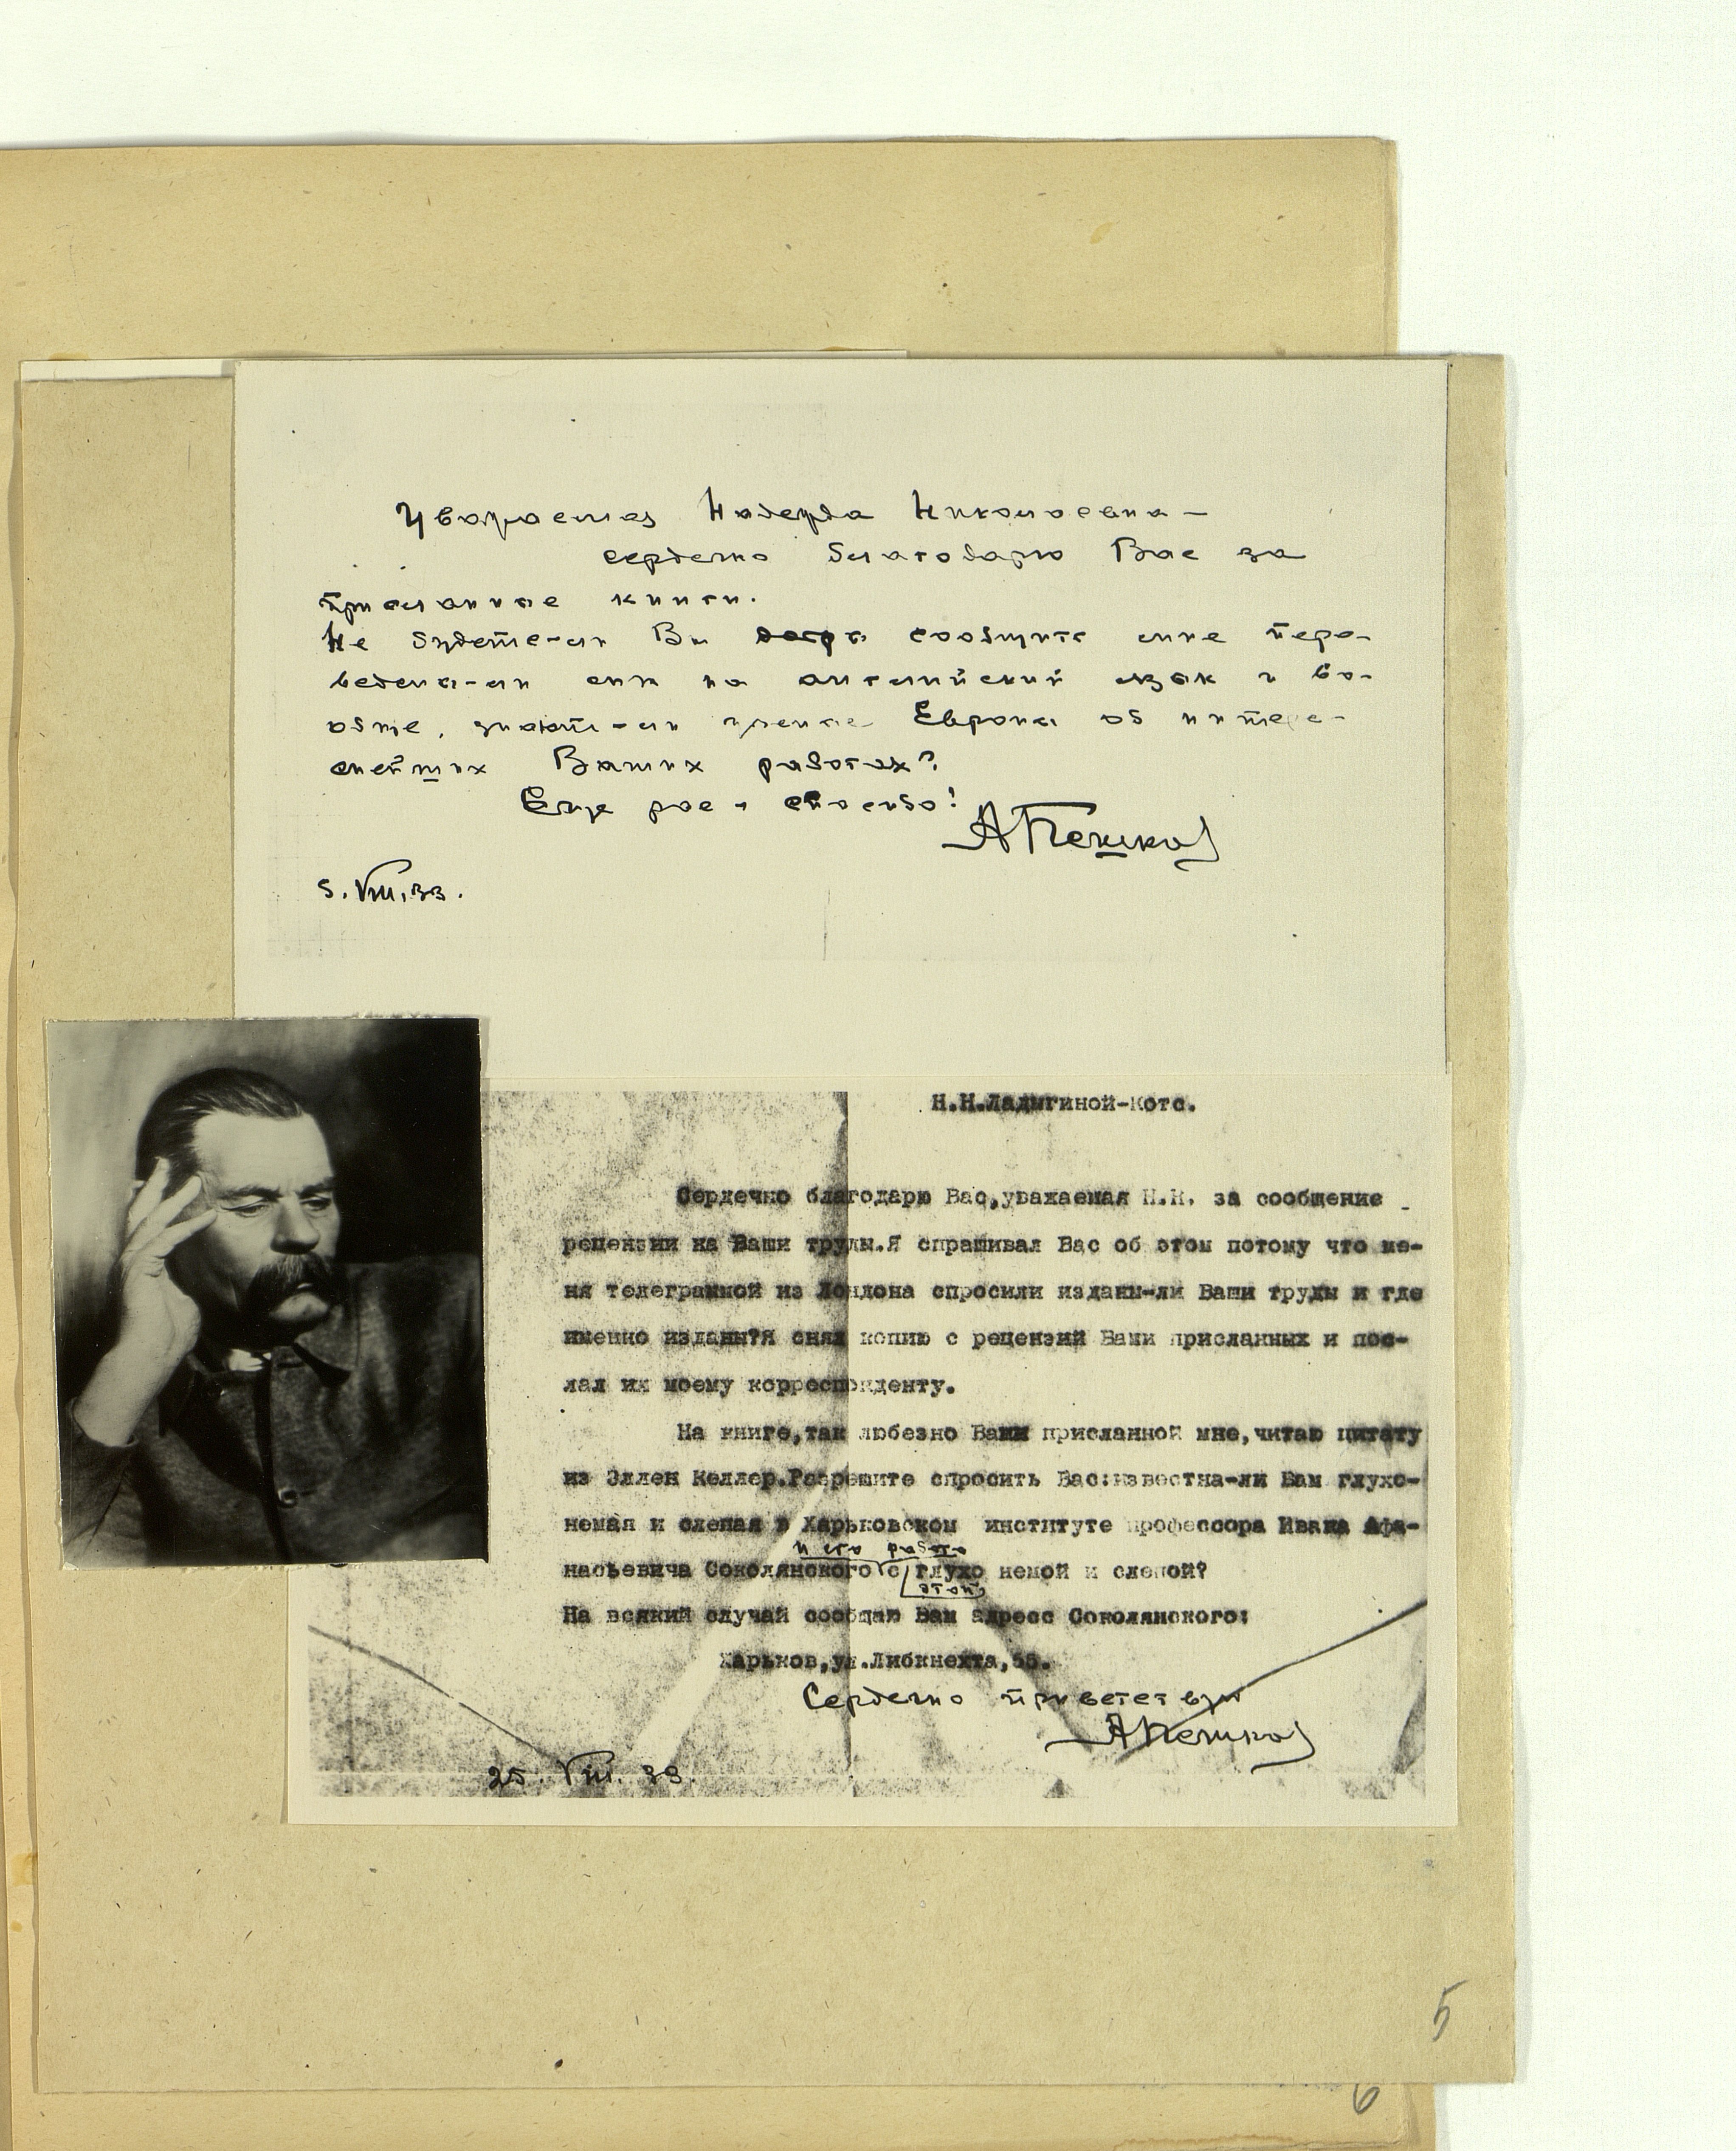 Уважаемая Надежда Николаевна –
сердечно благодарю Вас за
присланные книги.
Не будете-ли Вы добры сообщить мне пере-
ведены-ли они на английский язык и во-
обще, знают-ли ученые Европы об интере-
снейших Ваших работах?
Еще раз – спасибо!
АПешков
5.VIII.33.
Н.Н.Ладыгиной-Котс.
Сердечно благодарю Вас,уважаемая Н.Н. за сообщение
рецензии на Ваши труды.Я спрашивал Вас об этом потому что ме-
ня телеграммой из Лондона спросили изданы-ли Ваши труды и где
именно изданы?Я снял копию с рецензий Вами присланных и пос-
лал их моему корреспонденту.
На книге,так любезно Вами присланной мне,читаю цитату
из Эллен Келлер.Разрешите спросить Вас:известна-ли Вам глухо-
немая и слепая в Харьковском институте профессора Ивана Афа-
и его работа
насьевича Соколянского с глухо немой и слепой?
этой
На всякий случай сообщаю Вам адресс Соколянского:
Харьков,ул.Либкнехта,55.
Сердечно приветствую
АПешков
25.VIII.33.
5
6